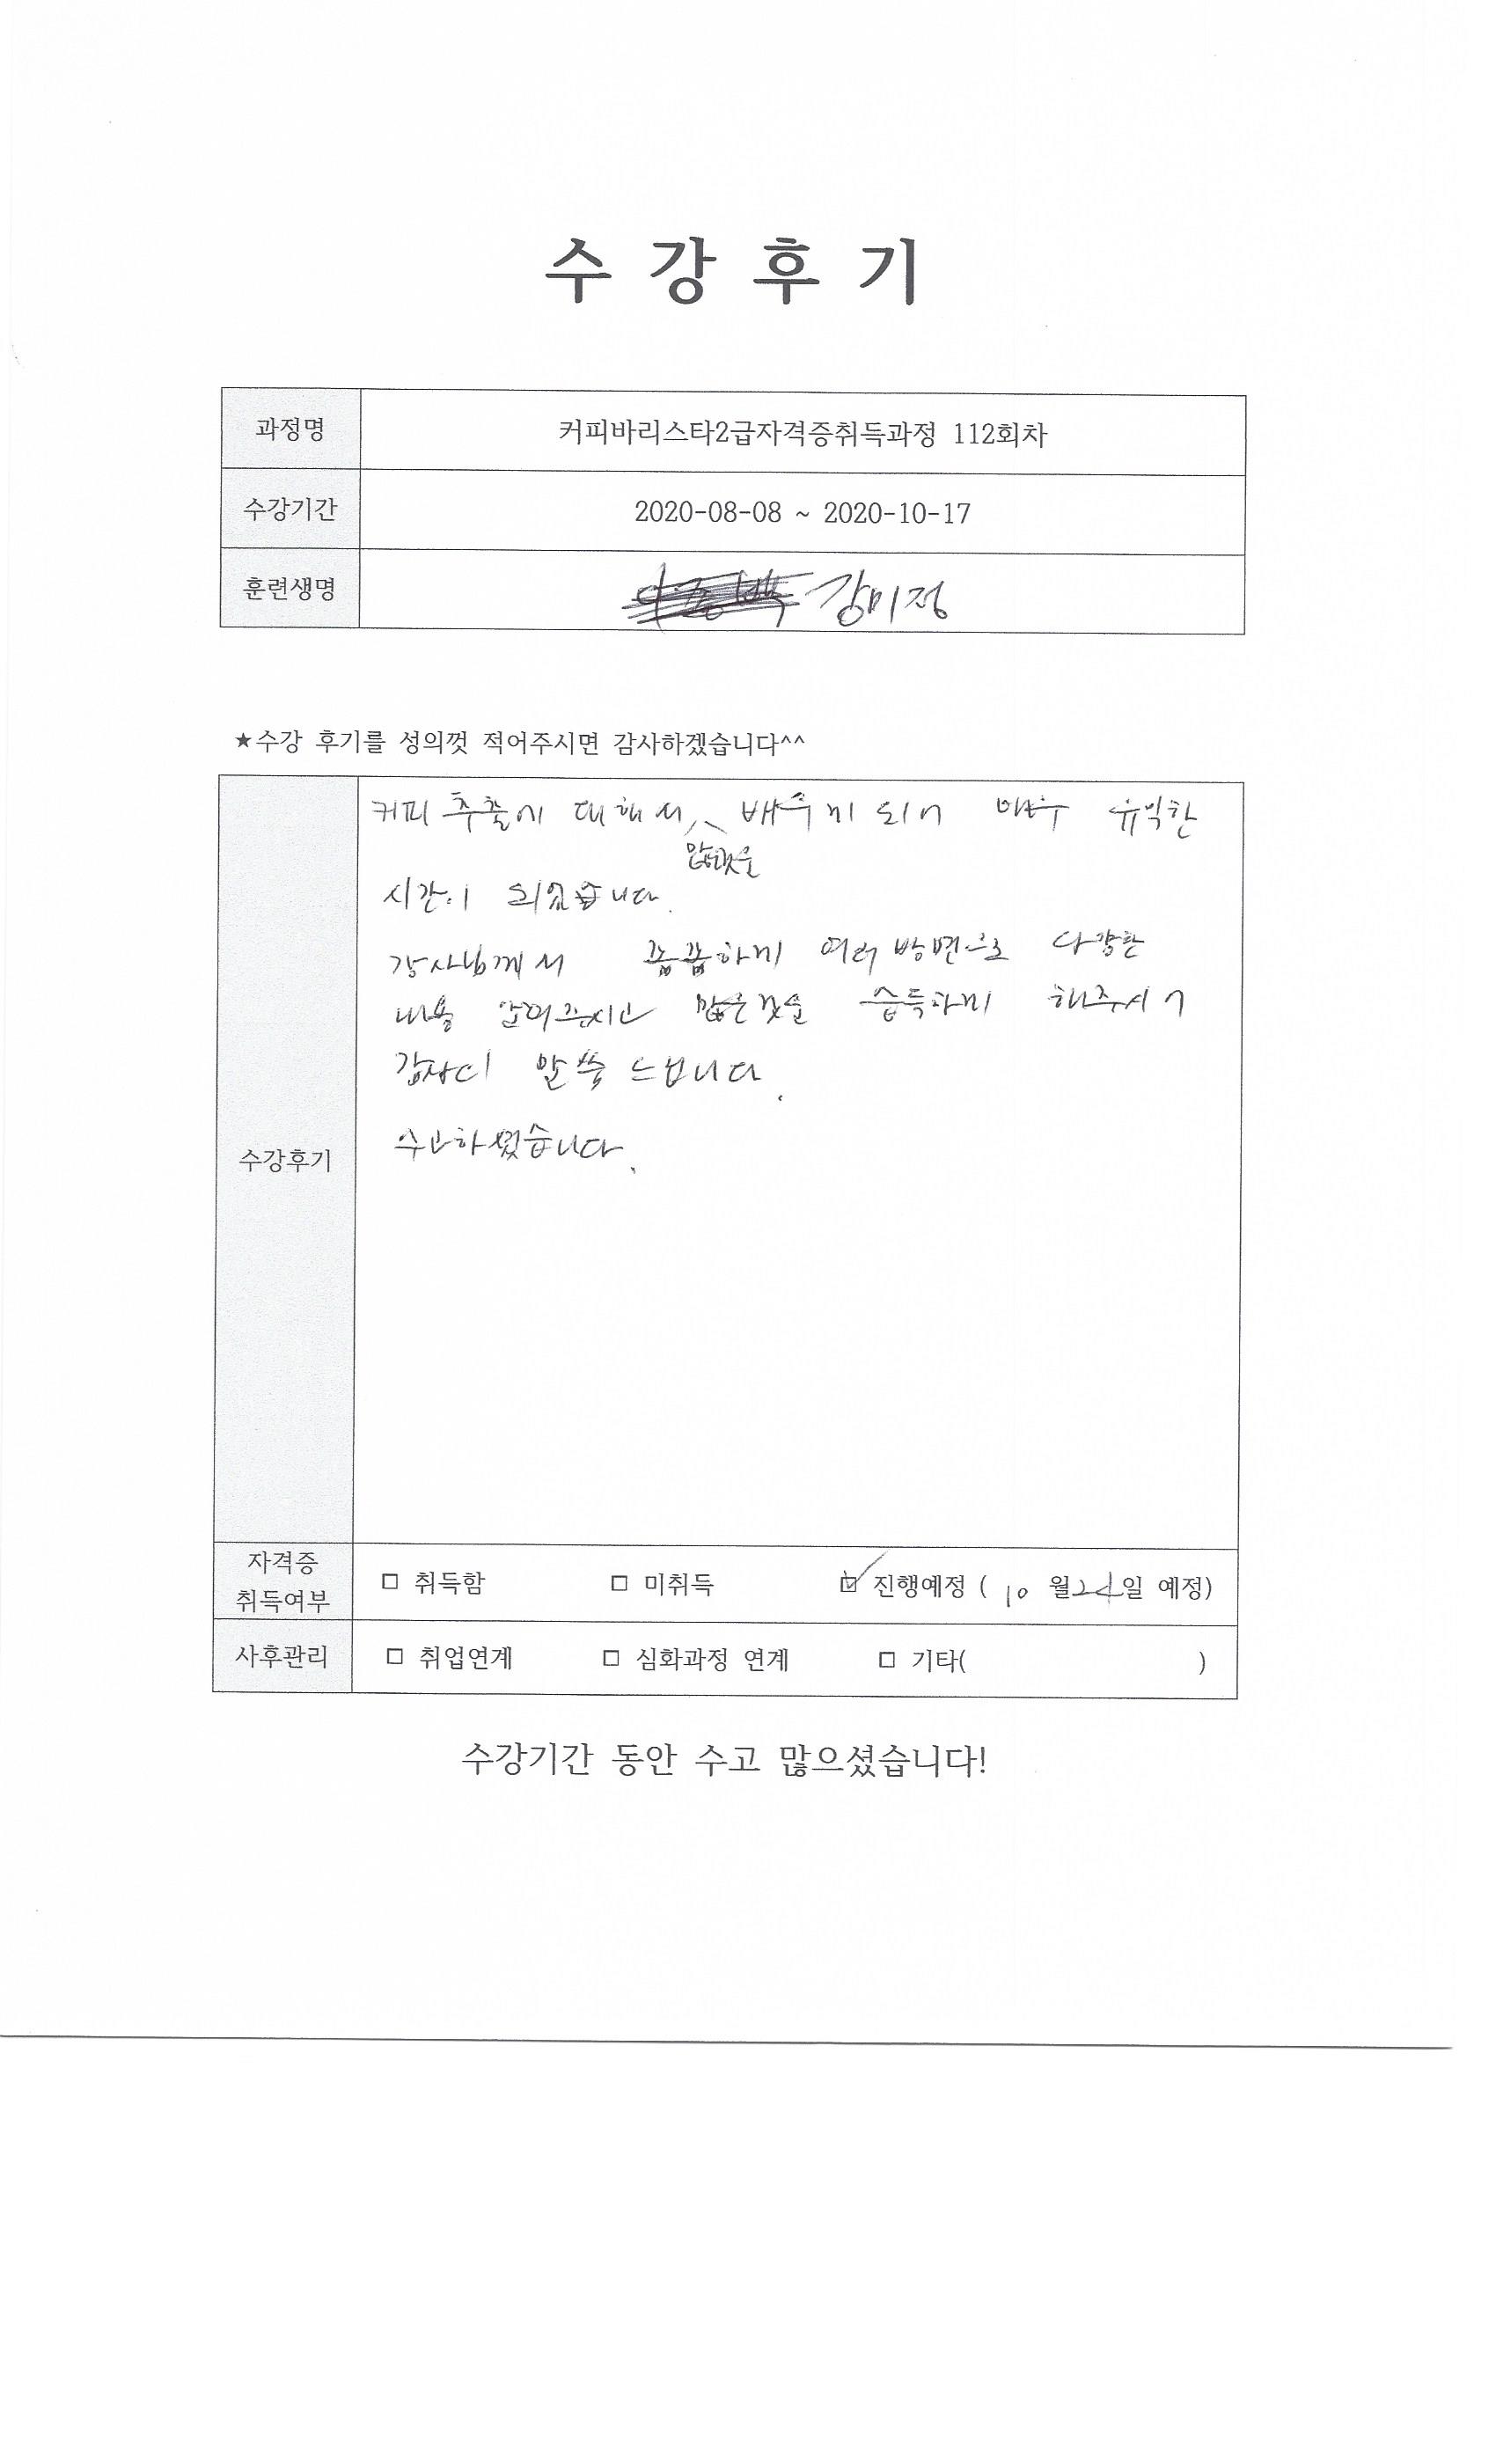 수 강 후 기
과정명 커피바리스타2급자격증취득과정 112회차
수강기간 2020-08-08 ~ 2020-10-17
훈련생명 강미정
★수강 후기를 성의껏 적어주시면 감사하겠습니다^^
수강후기
커피 추출에 대해서 많은것을 배우게 되어 매우 유익한
시간이 되었습니다.
강사님께서 꼼꼼하게 여러방면으로 다양한
내용 알려주시고 많은것을 습득하게 해주시어
감사의 말씀 드립니다.
수고하셨습니다.
자격증 취득여부 □ 취득함 □ 미취득 ☑ 진행예정 ( 10 월 24일 예정)
사후관리 □ 취업연계 □ 심화과정 연계 □ 기타( )
수강기간 동안 수고 많으셨습니다!